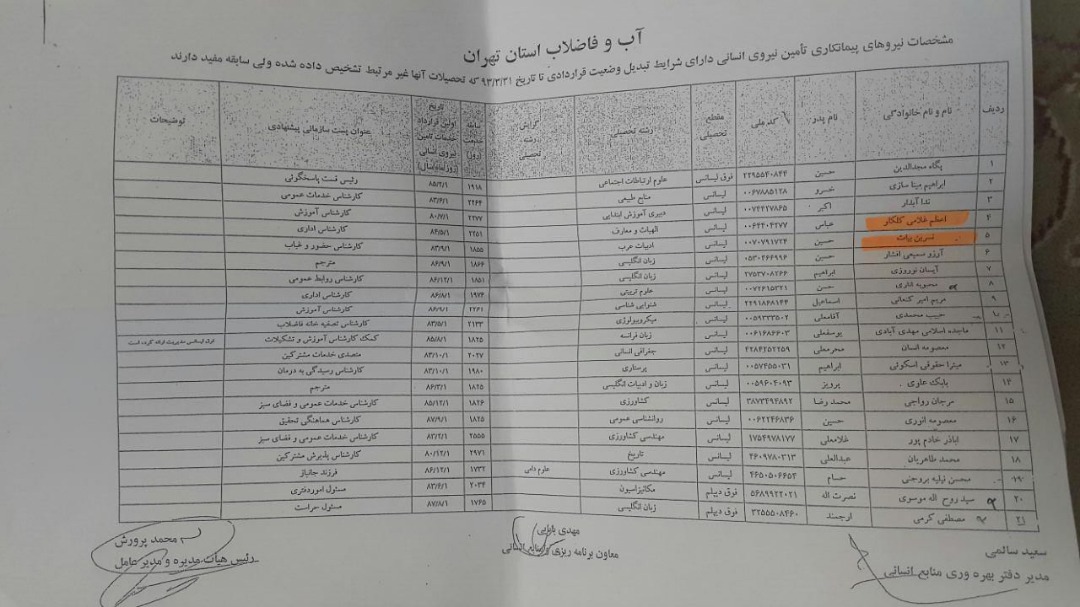 آب و فاضلاب استان تهران
مشخصات نیروهای پیمانکاری تأمین نیروی انسانی دارای شرایط تبدیل وضعیت قراردادی تا تاریخ ۹۳/۳/۳۱ که تحصیلات آنها غیر مرتبط تشخیص داده شده ولی سابقه مفید دارند
ردیف نام و نام خانوادگی نام پدر کدملی مقطع تحصیلی رشته تحصیلی گرایش رشته تحصیلی سابقه خدمت (روز) تاریخ اولین قرارداد خدمات تأمین نیروی انسانی (روز/ماه/سال) عنوان پست سازمانی پیشنهادی توضیحات
۱ پگاه مجدالدین حسین ۲۲۹۵۵۴۰۸۴۴ فوق لیسانس علوم ارتباطات اجتماعی ۱۹۱۸ ۸۵/۲/۱ رئیس قسمت پاسخگوئی
۲ ابراهیم مینا سازی خسرو ۰۰۶۷۸۸۵۱۲۸ لیسانس منابع طبیعی ۲۲۶۴ ۸۳/۶/۱ کارشناس خدمات عمومی
۳ ندا آبدار اکبر ۰۰۷۴۴۲۷۸۶۵ لیسانس دبیری آموزش ابتدایی ۲۲۷۷ ۸۰/۷/۱ کارشناس آموزش
۴ اعظم غلامی کلکار عباس ۰۰۶۴۴۰۴۲۷۷ لیسانس الهیات و معارف ۲۲۵۱ ۸۴/۵/۱ کارشناس اداری
۵ نسرین بیات حسین ۰۰۷۰۷۹۱۷۲۴ لیسانس ادبیات عرب ۱۸۵۵ ۸۳/۹/۱ کارشناس حضور و غیاب
۶ آرزو سمیعی افشار حسین ۰۵۳۰۴۶۶۹۹۶ لیسانس زبان انگلیسی ۱۸۶۶ ۸۶/۹/۱ مترجم
۷ آیسان نوروزی ابراهیم ۲۷۵۳۷۰۸۲۶۶ لیسانس زبان انگلیسی ۱۸۵۱ ۸۶/۱۲/۱ کارشناس روابط عمومی
۸ محبوبه حسن ۰۰۷۲۶۱۵۳۲۱ لیسانس علوم تربیتی ۱۹۷۴ ۸۶/۸/۱ کارشناس اداری
۹ مریم امیر کنعانی اسماعیل ۲۲۹۱۸۶۸۱۴۴ لیسانس شنوایی شناسی ۲۲۶۱ ۸۶/۹/۱ کارشناس آموزش
۱۰ حبیب محمدی آقامعلی ۰۰۵۹۳۳۳۵۰۲ لیسانس میکروبیولوژی ۲۱۳۳ ۸۳/۵/۱ کارشناس تصفیه خانه فاضلاب
۱۱ ماجده اسلامی مهدی آبادی یوسفعلی ۰۰۶۱۶۸۶۶۰۳ لیسانس زبان فرانسه ۱۸۲۵ ۸۵/۸/۱ کمک کارشناس آموزش و تشکیلات فوق لیسانس مدیریت ارائه کرده است
۱۲ معصومه انسان محرمعلی ۴۲۸۴۲۵۲۲۵۹ لیسانس جغرافی انسانی ۲۰۲۷ ۸۳/۱۰/۱ متصدی خدمات مشترکین
۱۳ میترا حقوقی اسکوئی ابراهیم ۰۰۵۷۴۵۵۰۳۱ لیسانس پرستاری ۱۹۸۰ ۸۳/۱۰/۱ کارشناس رسیدگی به درمان
۱۴ بابک علوی پرویز ۰۰۵۹۶۰۴۰۹۳ لیسانس زبان و ادبیات انگلیسی ۱۸۲۵ ۸۶/۳/۱ مترجم
۱۵ مرجان رواجی محمد رضا ۳۸۷۳۴۹۴۸۹۲ لیسانس کشاورزی ۱۸۲۶ ۸۵/۱۲/۱ کارشناس خدمات عمومی و فضای سبز
۱۶ معصومه انوری حسین ۰۰۶۲۲۴۶۸۳۶ لیسانس روانشناسی عمومی ۱۸۲۵ ۸۷/۹/۱ کارشناس هماهنگی تحقیق
۱۷ اباذر خادم پور غلامعلی ۱۷۵۴۹۷۸۱۷۷ لیسانس مهندسی کشاورزی ۲۵۵۵ ۸۲/۲/۱ کارشناس خدمات عمومی و فضای سبز
۱۸ محمد طاهریان عبدالعلی ۲۶۰۹۷۸۰۳۱۳ لیسانس تاریخ ۲۹۷۱ ۸۰/۱۲/۱ کارشناس پذیرش مشترکین
۱۹ محسن نیلیه بروجنی حسام ۴۶۵۰۵۰۶۶۵۳ لیسانس مهندسی کشاورزی علوم دامی ۱۷۳۲ ۸۶/۱۲/۱ فرزند جانباز
۲۰ سید روح اله موسوی نصرت اله ۵۶۸۹۹۲۲۰۲۱ فوق دیپلم مکانیزاسیون ۲۰۳۴ ۸۳/۶/۱ مسئول اموردفتری
۲۱ مصطفی کرمی ارجمند ۳۲۵۵۵۰۸۴۶۰ فوق دیپلم زبان انگلیسی ۱۷۶۵ ۸۷/۸/۱ مسئول حراست
سعید سالمی
مدیر دفتر بهره وری منابع انسانی
مهدی بابایی
معاون برنامه ریزی و منابع انسانی
محمد پرورش
رئیس هیات مدیره و مدیر عامل